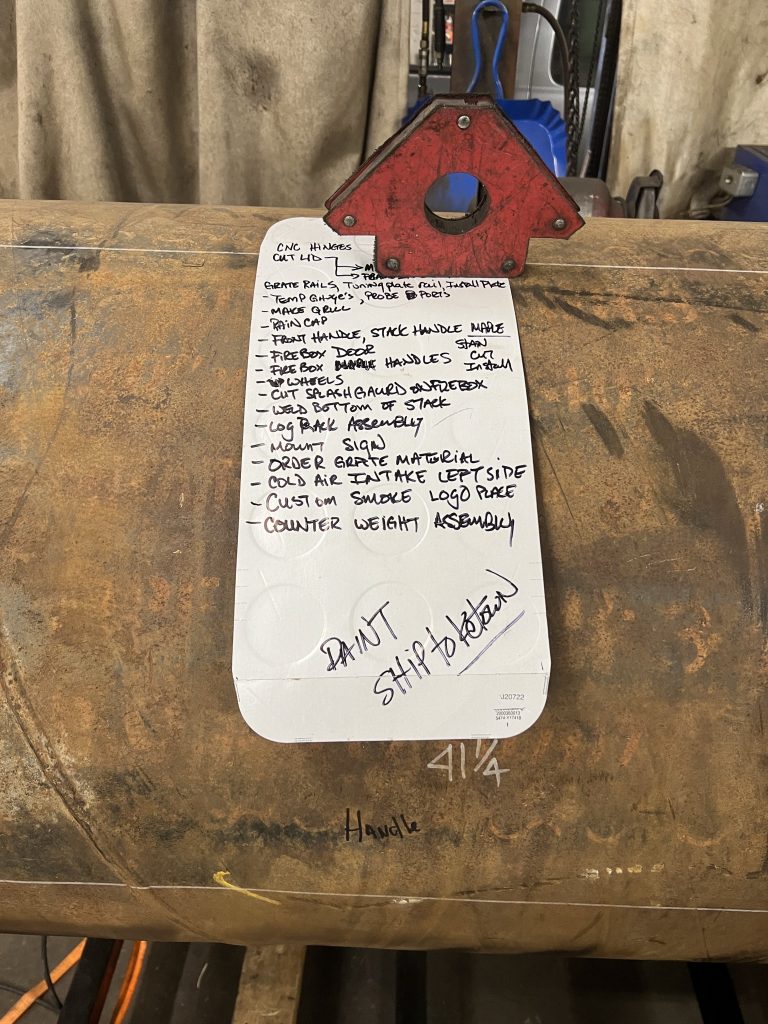 CNC HINGES
CUT LID
GRATE RAILS, Tuning plate rail, Install Plate
- TEMP GAUGE'S, PROBE PORTS
- MAKE GRILL
- RAIN CAP
- FRONT HANDLE, STACK HANDLE MAPLE
- FIREBOX DOOR STAIN
- FIREBOX HANDLES CUT
Install
- WHEELS
- CUT SPLASH GAURD ON FIREBOX
- WELD BOTTOM OF STACK
- LOG RACK ASSEMBLY
- MOUNT SIGN
- ORDER GRATE MATERIAL
- COLD AIR INTAKE LEFT SIDE
- CUSTOM SMOKE LOGO PLATE
- COUNTER WEIGHT ASSEMBLY
PAINT
SHIP to
J20722
1
41 1/4
Handle